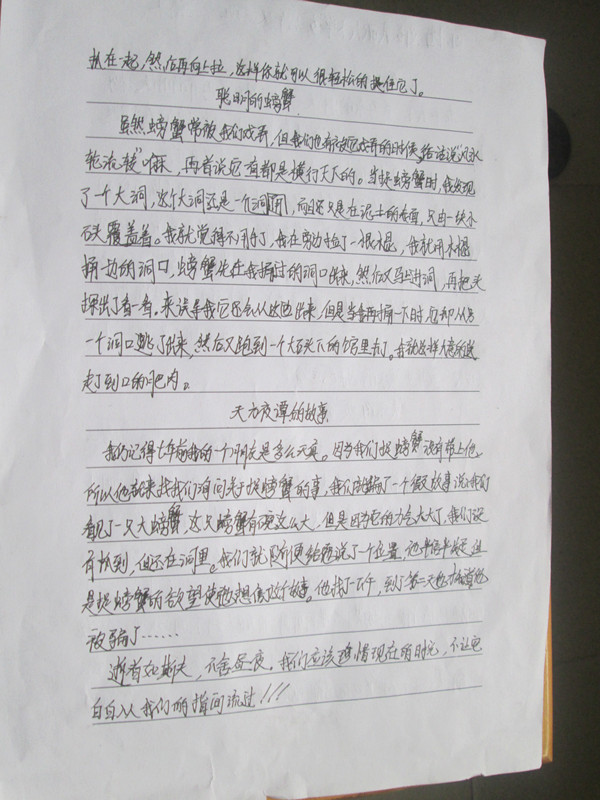 趴在一起,然后再向上拉,这样你就可以很轻松的捉住它了。
聪明的螃蟹
虽然螃蟹常被我们戏弄,但我们也有被它戏弄的时候,俗话说"风水
轮流转"嘛,再者说它有都是横行天下的。当捉螃蟹时,我发现
了一个大洞,这个大洞还是一个洞,而且还只是在泥土的表面,只由一块小
石头覆盖着。我就觉得不对了,我在旁边捡了一根棍,我就用木棍
捅一边的洞口,螃蟹先在我捅过的洞口出来,然后又进洞,再把头
探出了看一看。来误导我它还会从这边出来,但是当我再捅一下时,它却从另
一个洞口逃了出来,然后又跑到一个大石头下的窝里去了。我就这样
走了到口的肥肉。
天方夜谭的故事
我仍记得七年前我的一个朋友是多么天真。因为我们捉螃蟹没有带上他,
所以他都来找我们询问关于捉螃蟹的事,我们就编了一个假故事说:我们
看见了一只大螃蟹,这只螃蟹有碗这么大,但是因为它的力气太大了,我们没
有抓到,但还在洞里。我们就随便给他说了一个位置,他半信半疑,但
是捉螃蟹的欲望使他想信了这个故事。他找了一下午,到了第二天他才知道他
被骗了……
逝者如斯夫,不舍昼夜。我们应该珍惜现在的时光,不让它
白白从我们的指间流过!!!